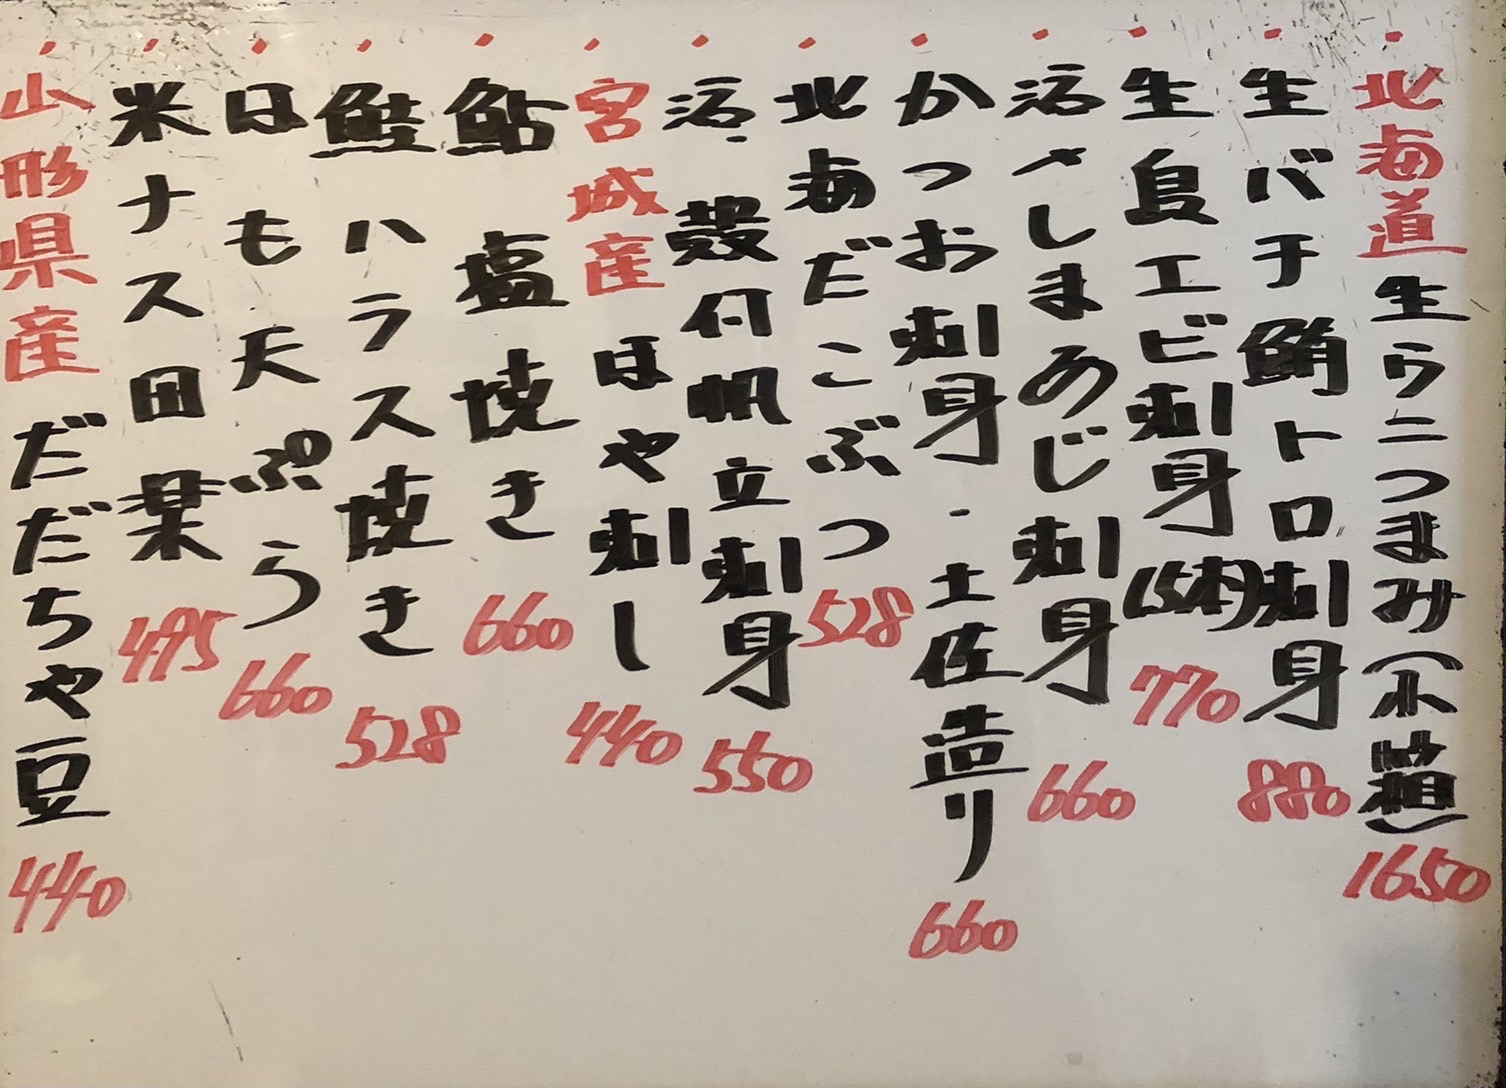 ・北海道生ウニつまみ(木箱)1650
・生バチ鮪トロ刺身 880
・生島エビ刺身(5本)770
・活〆しまあじ刺身 660
・かつお刺身・土佐造り 660
・北海だこぶつ 528
・活・殻付帆立刺身 550
・宮城産ほや刺し 440
・鮎塩焼き 660
・鮭ハラス焼き 528
・はも天ぷら 660
・米ナス田楽 495
・山形県産だだちゃ豆 440